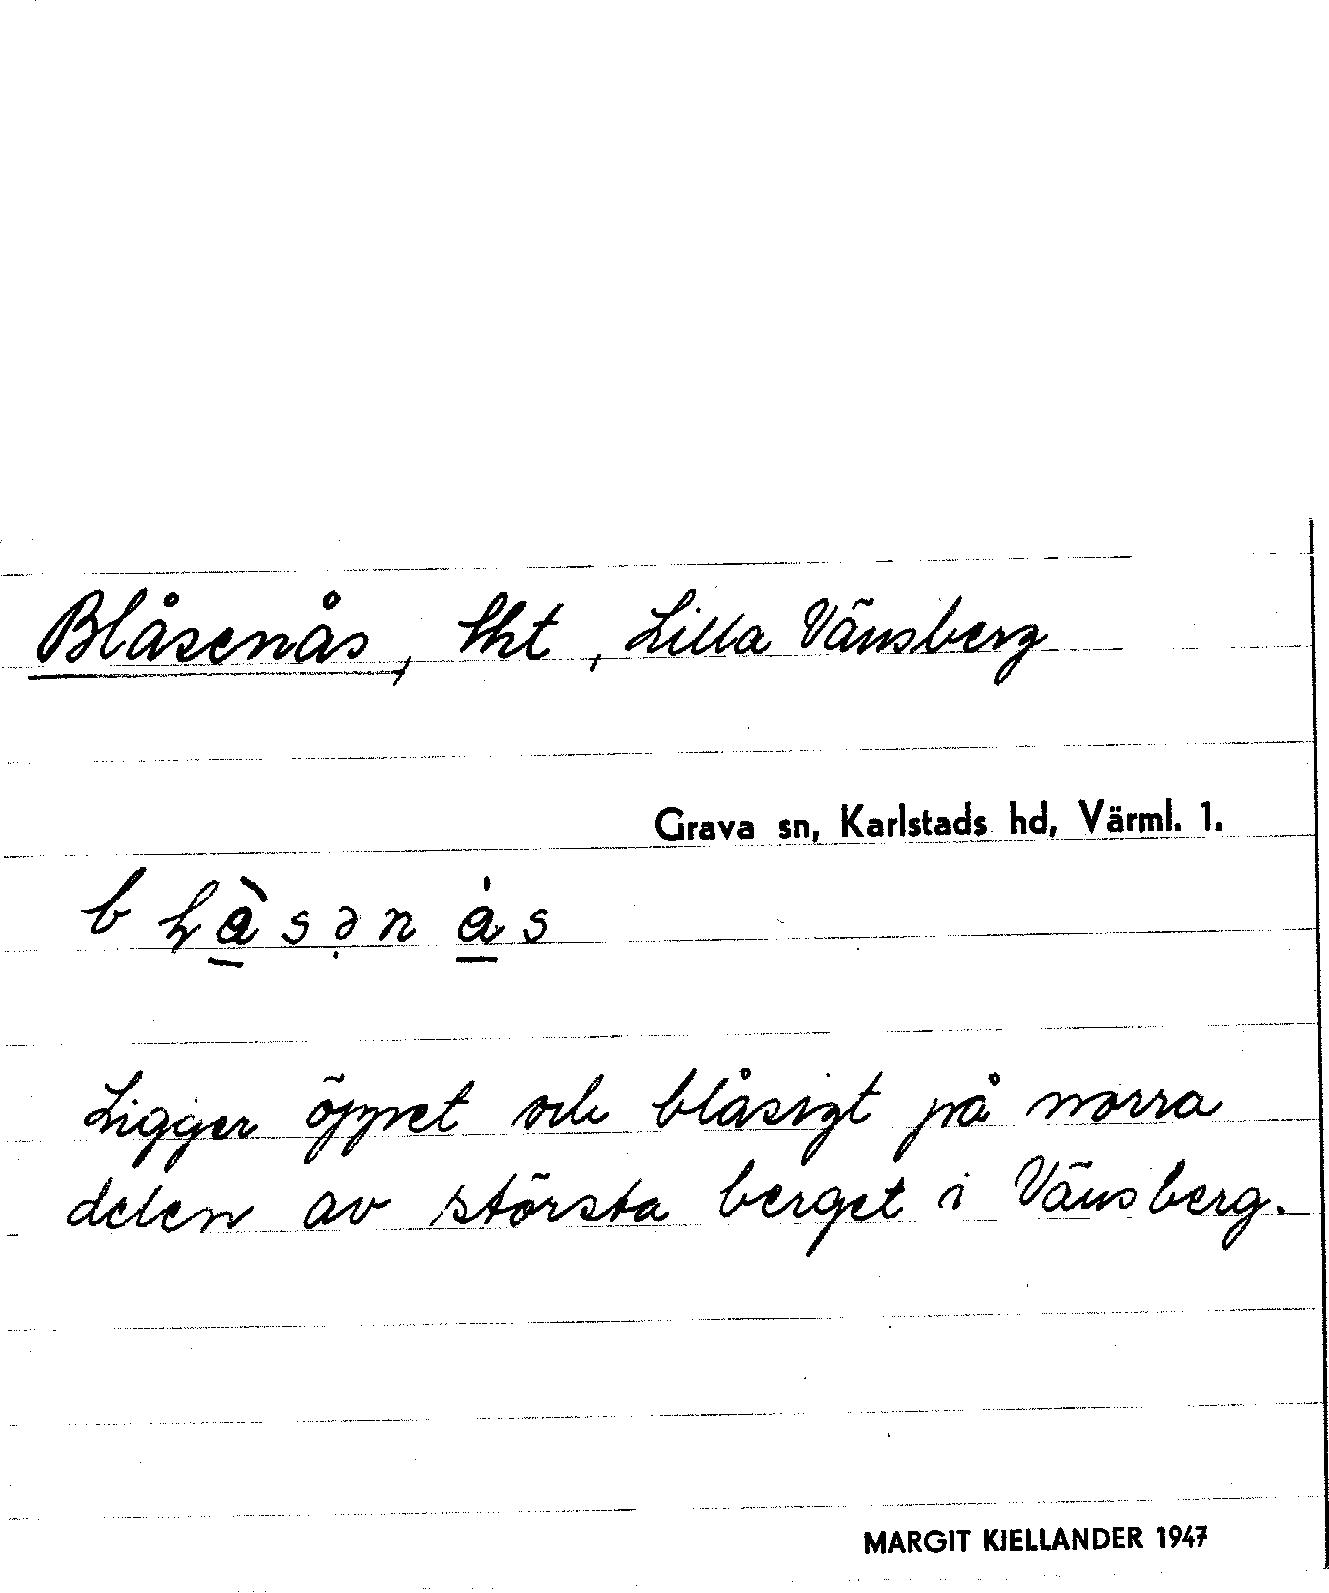 Blåsenås, lht, Lilla Vänsberg
Grava sn, Karlstads hd, Värml. 1.
Ligger öppet och blåsigt på norra
delen av största berget i Vänsberg.
MARGIT KJELLANDER 1947